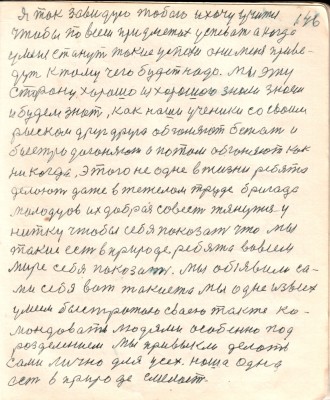 Я так завидую тобою и хочу учити 146
чтобы по всем предметах успевать а когда
умы и станут такие успехи они меня приве-
дут к тому чего будет надо. Мы эту
сторону хорошо и хорошого знали знаем
и будем знать, как наши ученики со своим
риском друг друга обгоняют бегают и
быстро догоняют а потом обгоняют как
никогда, этого не одне в жизни ребята
делоют даже в тежелом труде бригада
молодцов их добрая совест тянутця у
нитку чтобы себя показать что мы
такие есть в природе ребята во всем
мире себя показать. Мы обявили са-
ми себя вот такиета мы одне из всех
умеем быстротою сваею также ко-
мондовать людями особенно под
розделением мы привыкли делоть
сами лично для усех. наша одна
есть в природе смелость.